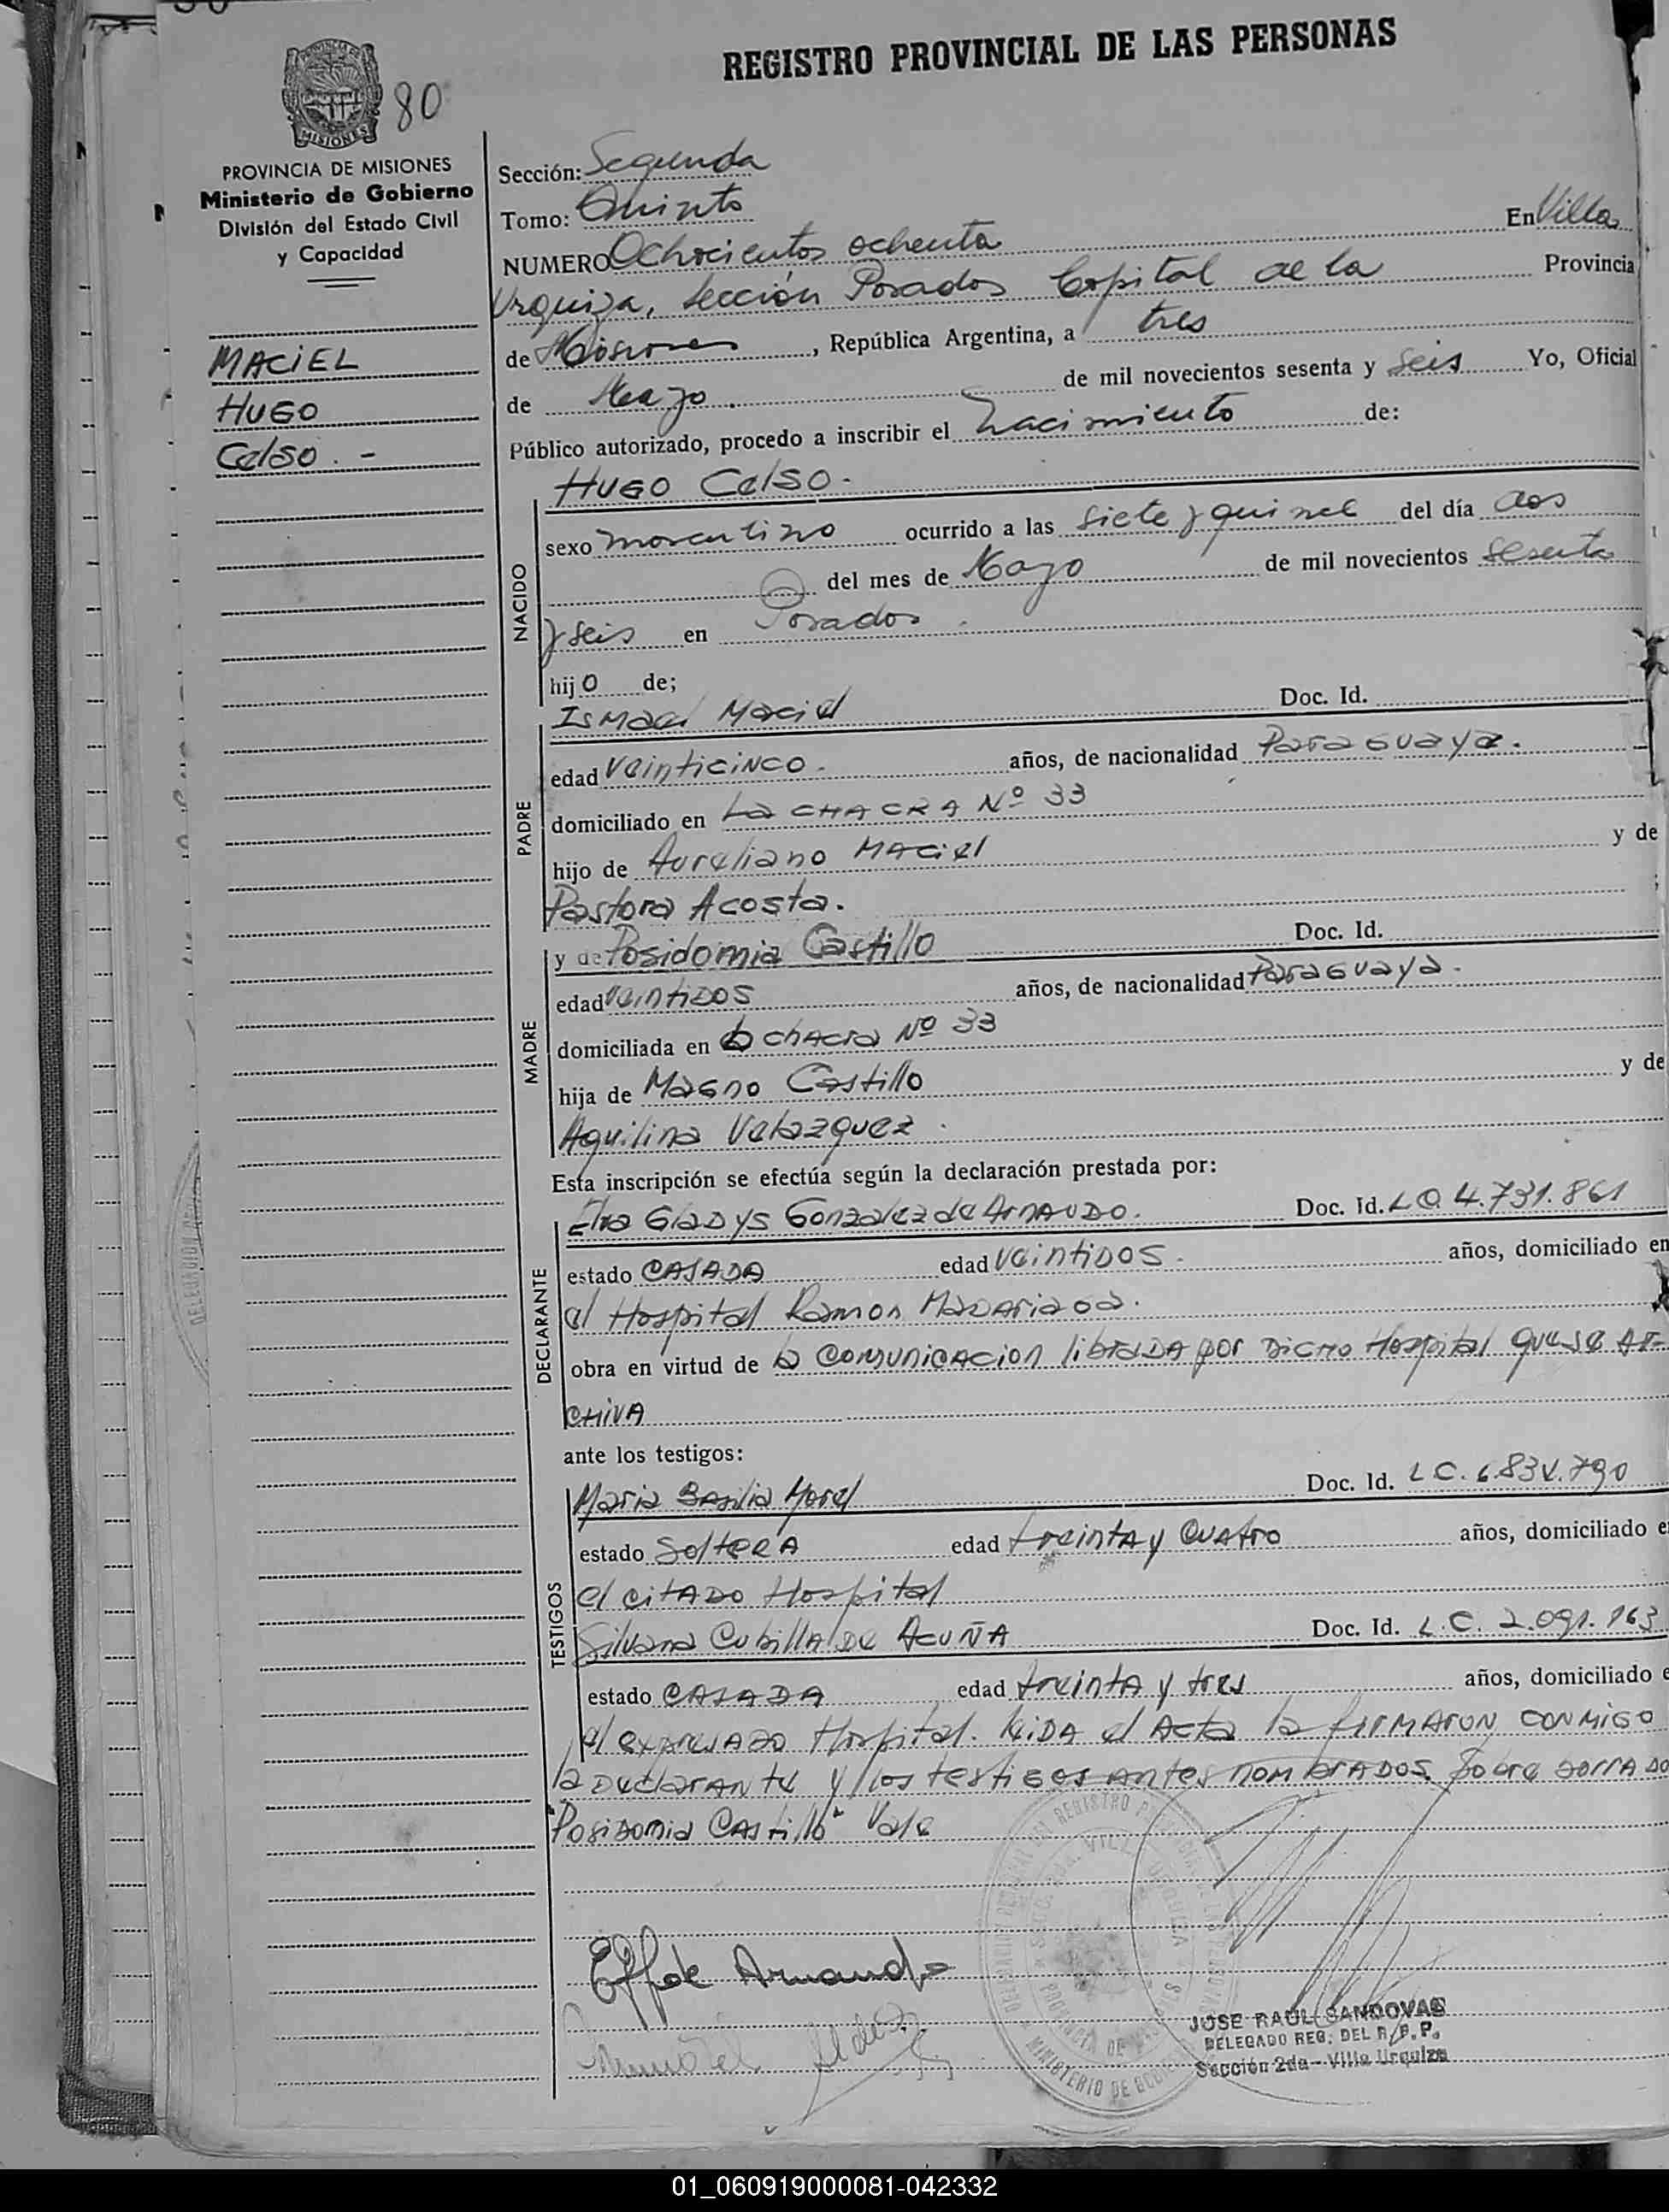 REGISTRO PROVINCIAL DE LAS PERSONAS
MISIONES
80
PROVINCIA DE MISIONES
Ministerio de Gobierno
División del Estado Civil
y Capacidad
MACIEL
HUGO
Celso. -
Sección: Segunda
Tomo: Quinto
NUMERO Ochocientos ochenta En Villa
Urquiza, Sección Posadas Capital de la Provincia
de Misiones, República Argentina, a tres
de Mayo. de mil novecientos sesenta y seis Yo, Oficial
Público autorizado, procedo a inscribir el Nacimiento de:
HUGO Celso.-
NACIDO
sexo masculino ocurrido a las siete y quince del día dos
del mes de Mayo de mil novecientos sesenta
y seis en Posadas.
hijo de;
PADRE
Ismael Maciel Doc. Id.
edad Veinticinco. años, de nacionalidad Paraguaya.
domiciliado en La CHACRA Nº 33
hijo de Aureliano Maciel y de
Pastora Acosta.
MADRE
y de Posidomia Castillo Doc. Id.
edad Veintidos años, de nacionalidad Paraguaya.
domiciliada en la chacra Nº 33
hija de Magno Castillo y de
Aquilina Velazquez.
Esta inscripción se efectúa según la declaración prestada por:
DECLARANTE
Elva Gladys Gonzalez de Arnaudo. Doc. Id. 4.731.861
estado CASADA edad Veintidos. años, domiciliado en
el Hospital Ramon Madariaga.
obra en virtud de la comunicacion librada por Dicho Hospital que se Ar-
chiva
ante los testigos:
TESTIGOS
Maria Basilia Morel Doc. Id. L C.
estado Soltera edad treinta y cuatro años, domiciliado e
el citado Hospital
Silvana Cubilla de Acuña Doc. Id. L.C. 2.091.163
estado CASADA edad treinta y tres años, domiciliado e
el expresado Hospital. Leida el Acta la firmaron conmigo
la declarante y los testigos antes nombrados. Sobre borrado
"Posidomia Castillo" Vale
JOSE RAUL SANDOVAL
DELEGADO REG. DEL R. P. P.
Sección 2da - Villa Urquiza
01_060919000081-042332